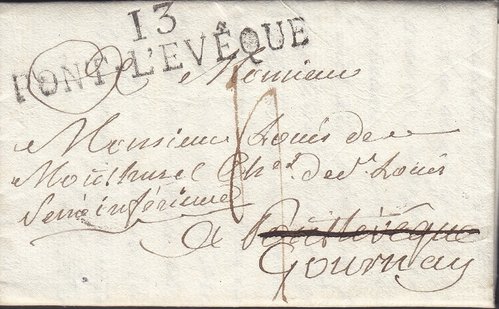 13
PONT-L'EVÊQUE
A Monsieur
Monsieur Louis de
Ch.er de St Louis
Seine inférieure
a Pontlevêque
Gournay